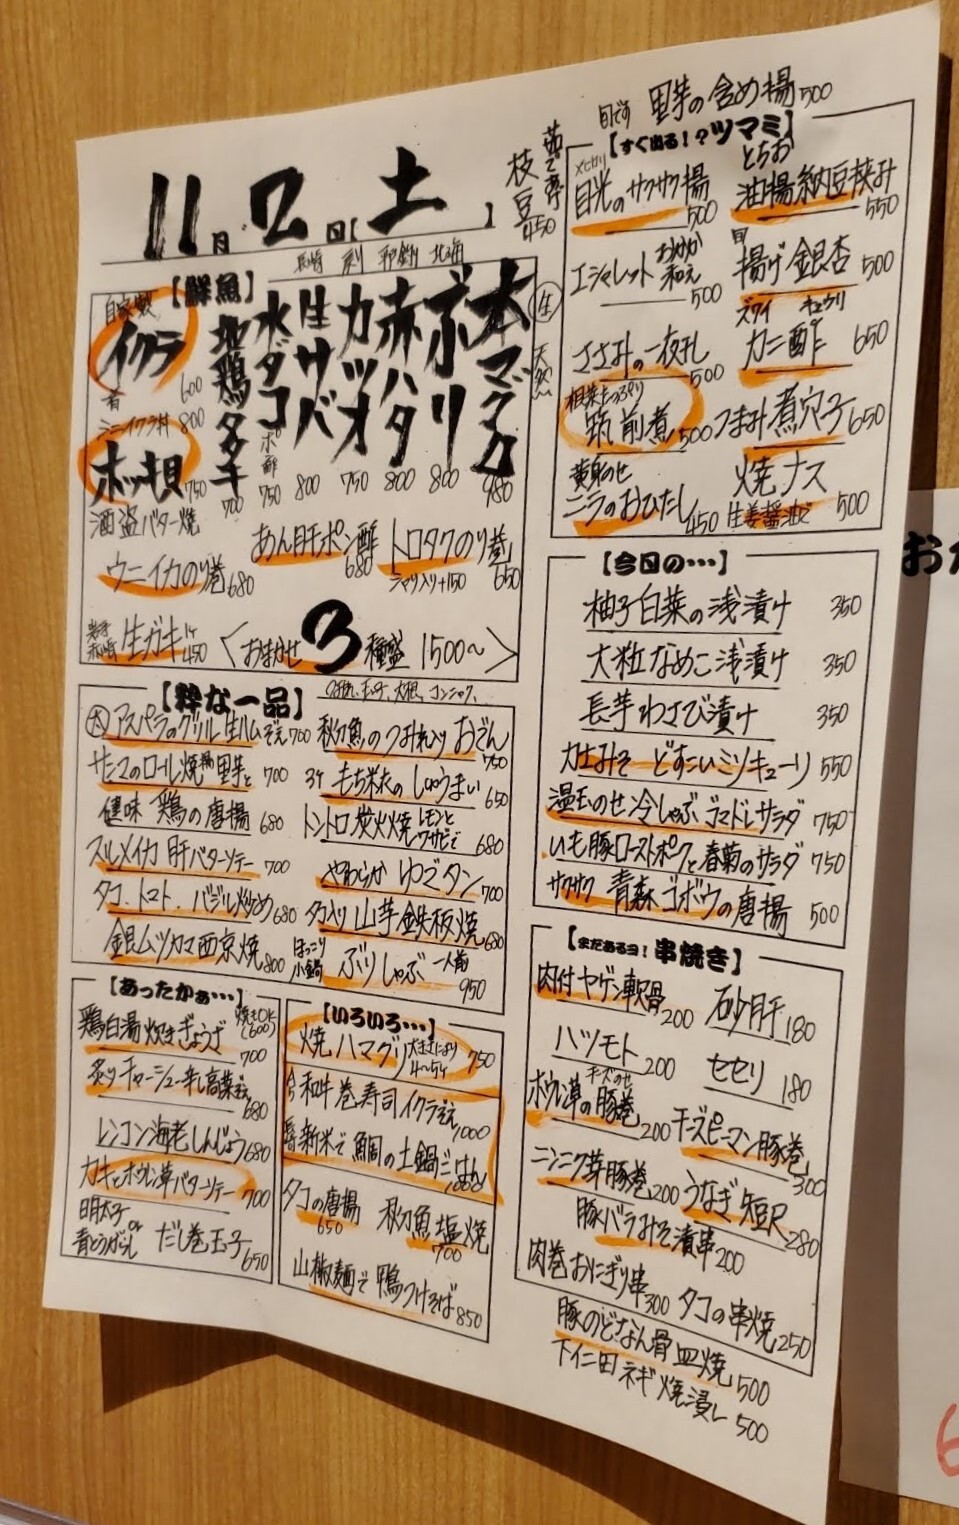 11月2日【土】
茹で
枝豆
450
【鮮魚】
長崎
北海
生
天然
本マグロ 980
ブリ 800
赤ハタ 800
カツオ 750
生サバ 800
水ダコ
ポン酢
750
地鶏タタキ 700
自家製
イクラ
600
ミニイクラ丼 800
ホッキ貝 750
酒盗バター焼
あん肝ポン酢 680
トロタクのり巻 650
シャリ入り+150
ウニイカのり巻 680
生ガキ 1ケ 450
〈おまかせ3種盛 1500〜〉
【粋な一品】
つみれ、玉子、大根、コンニャク、
アスパラのグリル 生ハムぞえ 700
秋刀魚のつみれ入り おでん 750
サンマのロール焼 里芋と 700
3ケ もち米の しゅうまい 650
鶏の唐揚 680
トントロ炭火焼 レモンとワサビで 680
スルメイカ 肝バターソテー 700
やわらか ゆでタン 700
タコ、トマト、バジル炒め 680
タコ入り 山芋鉄板焼 680
銀ムツカマ西京焼 800
ほっこり小鍋 ぶりしゃぶ 一人前 950
【あったかぁ…】
鶏白湯 炊きぎょうざ 700
焼きもOK(600)
炙りチャーシュー 辛し高菜ぞえ 680
レンコン海老しんじょう 680
カキとホウレン草バターソテー 700
明太子or青とうがらし だし巻玉子 650
【いろいろ…】
焼ハマグリ 大きさにより4〜5ケ 750
和牛巻寿司イクラぞえ 1000
新米で 鯛の土鍋ごはん
タコの唐揚 650
秋刀魚塩焼 700
山椒麺で 鴨つけそば 850
旬です 里芋の含め揚 500
【すぐ出る!?ツマミ】
メヒカリ
目光のサクサク揚 500
とちお
油揚納豆挟み 550
エシャレット おかか和え 500
旬
揚げ銀杏 500
ささみの一夜干し 500
ズワイ キュウリ
カニ酢 650
根菜たっぷり
筑前煮 500
つまみ煮穴子 650
黄身のせ
ニラのおひたし 450
焼ナス
生姜醤油で 500
【今日の…】
柚子白菜の浅漬け 350
大粒なめこ浅漬け 350
長芋わさび漬け 350
力士みそ どすこいミソキューリ 550
温玉のせ冷しゃぶ ゴマドレサラダ 750
いも豚ローストポークと春菊のサラダ 750
サクサク 青森ゴボウの唐揚 500
【まだあるヨ!串焼き】
肉付ヤゲン軟骨 200
砂肝 180
ハツモト 200
セセリ 180
チーズのせ
ホウレン草の豚巻 200
チーズピーマン豚巻 300
ニンニク芽豚巻 200
うなぎ短尺 280
豚バラみそ漬串 200
肉巻おにぎり串 300
タコの串焼 250
豚のどなん骨皿焼 500
下仁田ネギ焼浸し 500